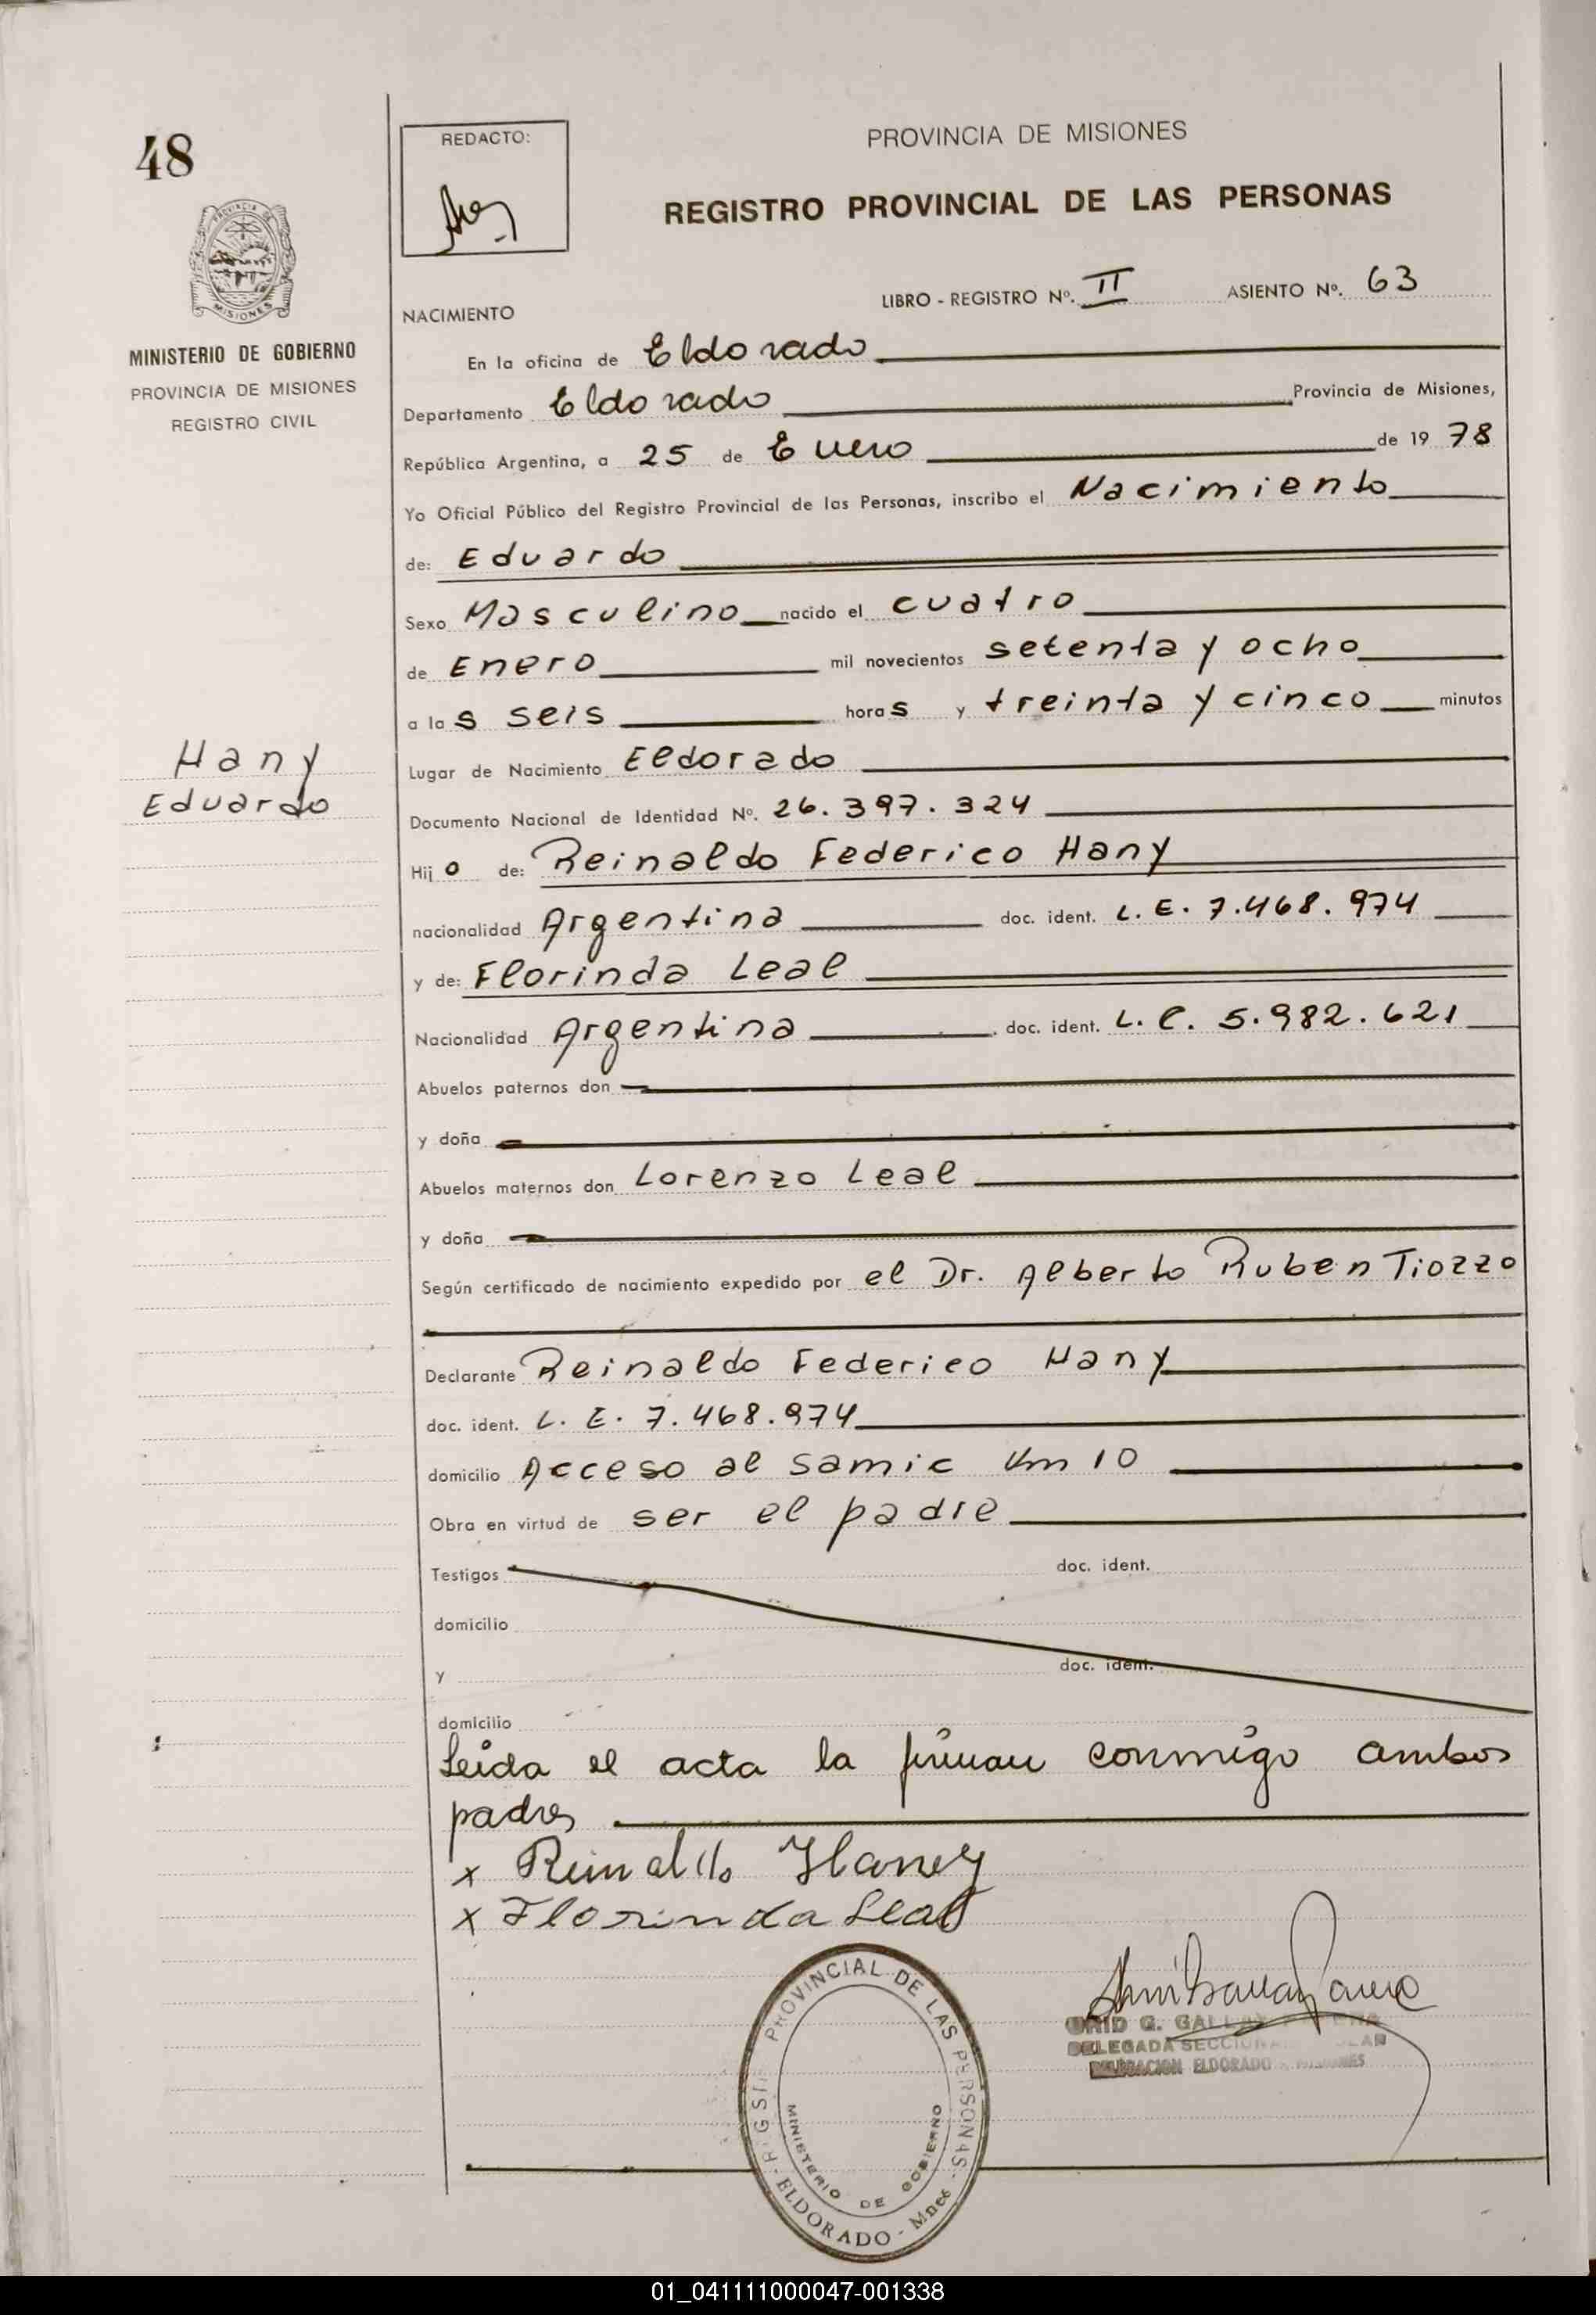 48
REDACTO:
PROVINCIA DE MISIONES
REGISTRO PROVINCIAL DE LAS PERSONAS
PROVINCIA DE
MISIONES
MINISTERIO DE GOBIERNO
PROVINCIA DE MISIONES
REGISTRO CIVIL
LIBRO - REGISTRO Nº. II ASIENTO Nº. 63
NACIMIENTO
En la oficina de Eldorado
Departamento Eldorado Provincia de Misiones,
República Argentina, a 25 de Enero de 1978
Yo Oficial Público del Registro Provincial de las Personas, inscribo el Nacimiento
de: Eduardo
Sexo Masculino nacido el cuatro
de Enero mil novecientos setenta y ocho
a las seis horas y treinta y cinco minutos
Hany
Eduardo
Lugar de Nacimiento Eldorado
Documento Nacional de Identidad Nº. 26.397.324
Hijo de: Reinaldo Federico Hany
nacionalidad Argentina doc. ident. L. E. 7.468.974
y de: Florinda Leal
Nacionalidad Argentina doc. ident. L. C. 5.982.621
Abuelos paternos don
y doña
Abuelos maternos don Lorenzo Leal
y doña
Según certificado de nacimiento expedido por el Dr. Alberto Ruben Tiozzo
Declarante Reinaldo Federico Hany
doc. ident. L. E. 7.468.974
domicilio Acceso al Samic Km 10
Obra en virtud de ser el padre
Testigos doc. ident.
domicilio
y doc. ident.
domicilio
Leida el acta la firman conmigo ambos
padres
x Reinaldo Haney
x Florinda Leal
G.
DELEGADA
DELEGACION ELDORADO
PROVINCIAL DE LAS PERSONAS
MINISTERIO DE GOBIERNO
ELDORADO - Mnes
01_041111000047-001338